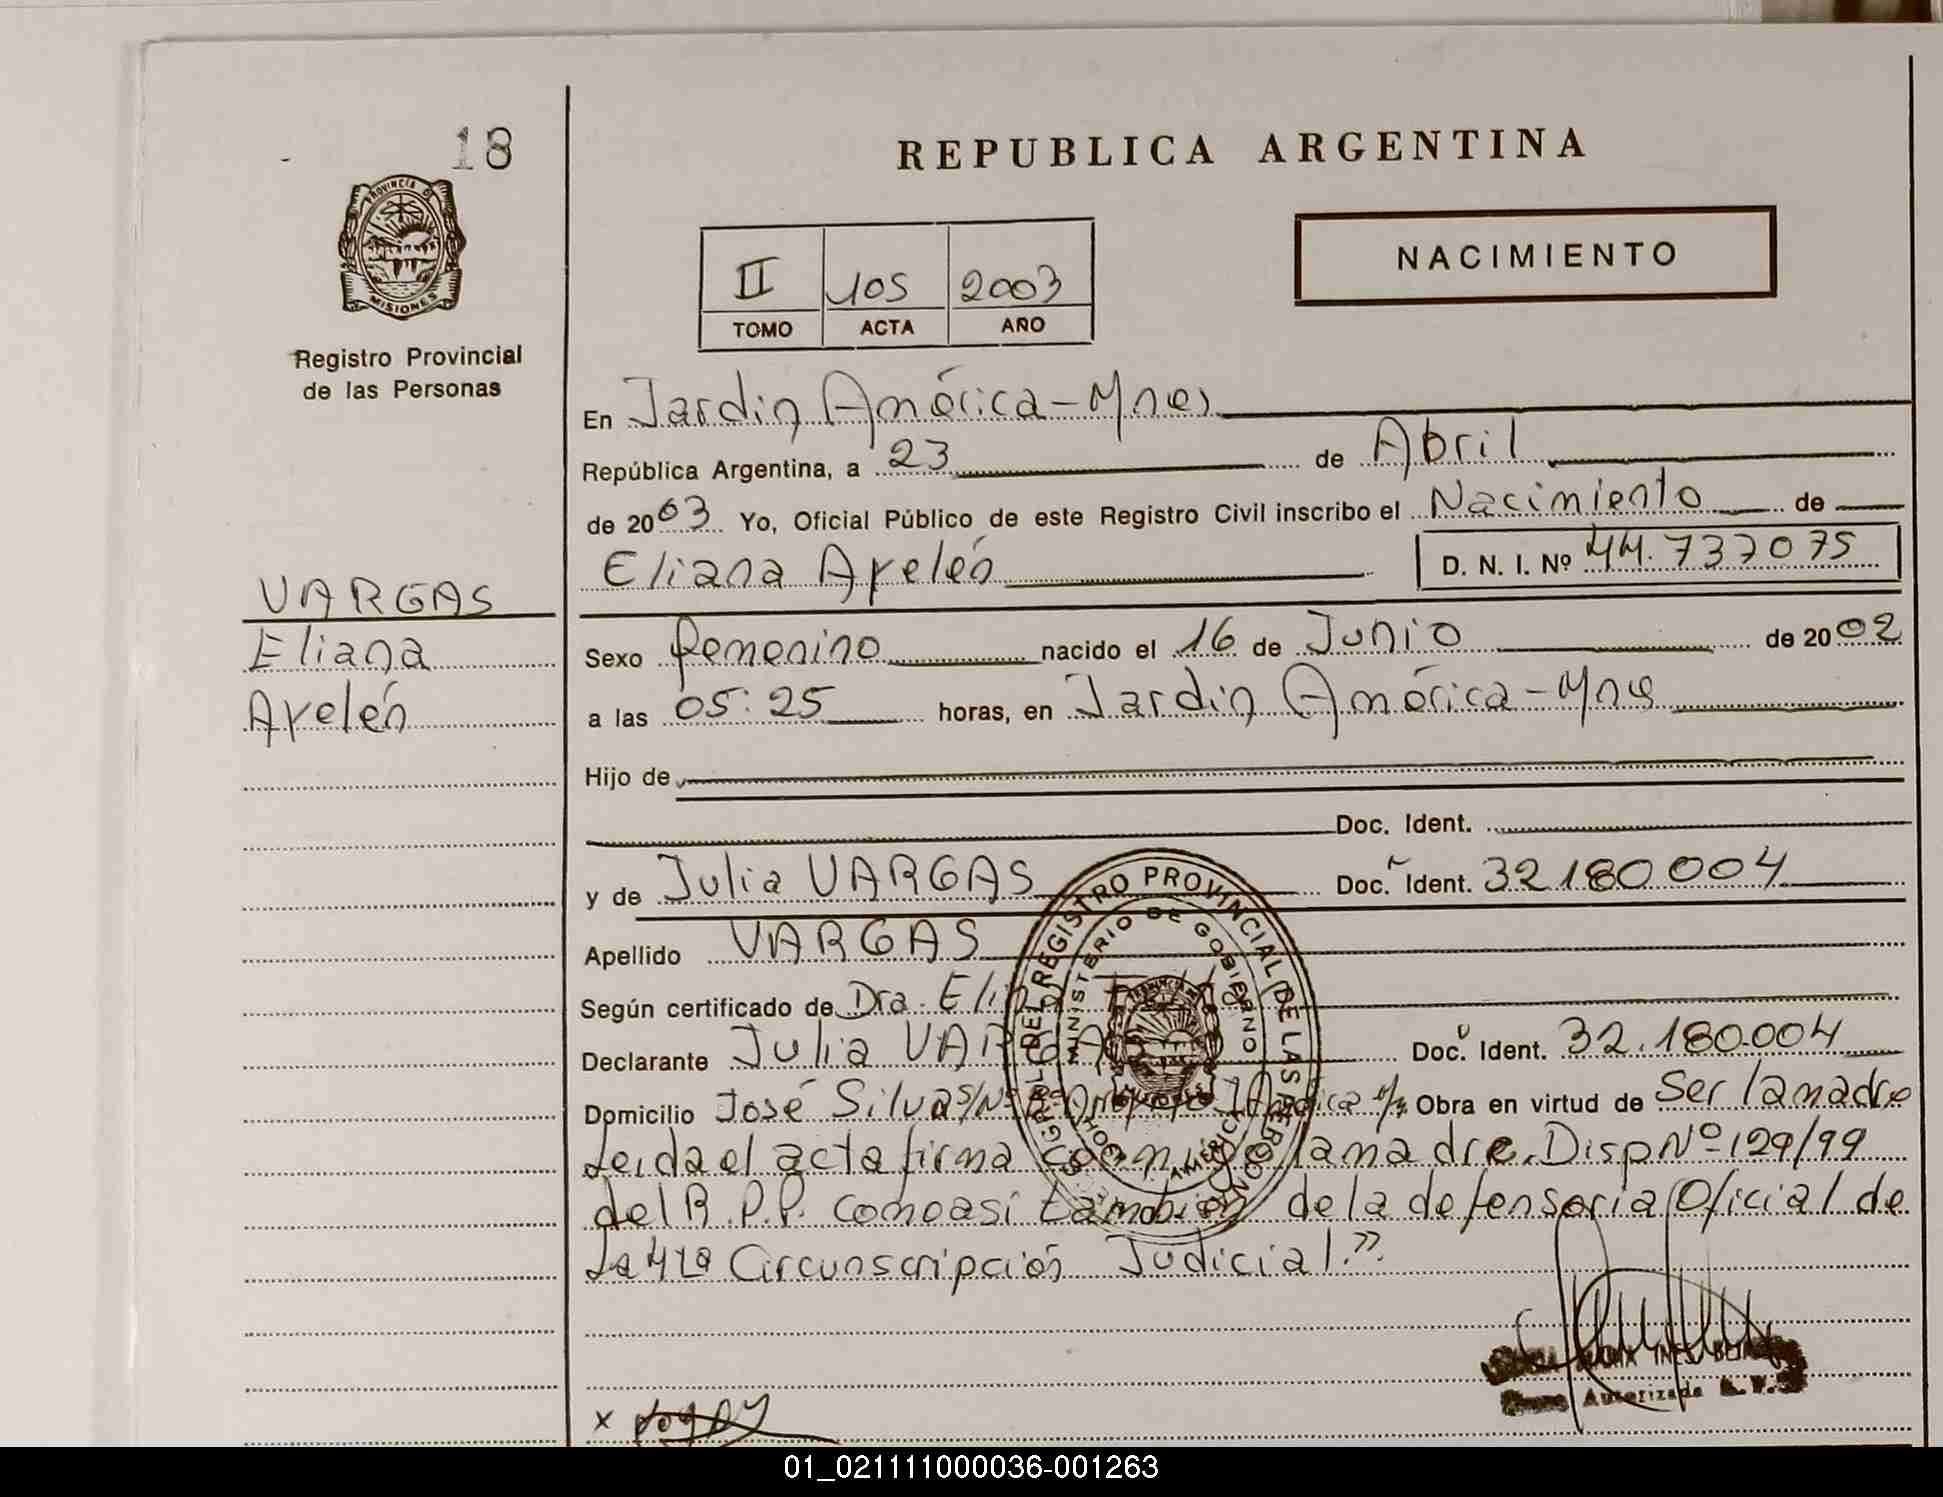 18
PROVINCIA DE
MISIONES
Registro Provincial
de las Personas
REPUBLICA ARGENTINA
NACIMIENTO
II 105 2003
TOMO ACTA AÑO
En Jardin América - Mnes
República Argentina, a 23 de Abril
de 2003 Yo, Oficial Público de este Registro Civil inscribo el Nacimiento de
Eliana Ayelén D. N. I. Nº 44.737075
VARGAS
Eliana
Ayelén
Sexo femenino nacido el 16 de Junio de 2002
a las 05:25 horas, en Jardin América - Mnes
Hijo de
Doc. Ident.
y de Julia VARGAS Doc. Ident. 32180004
Apellido VARGAS
Según certificado de Dra.
Declarante Julia VARGAS Doc. Ident. 32.180.004
Domicilio José Silva s/Nº Obra en virtud de Ser la madre
Leida el acta firma la madre. Disp Nº 129/99
del R.P.P. como asi tambien de la defensoria Oficial de
La 4ta Circunscripción Judicial.”
REGISTRO PROVINCIAL DE LAS PERSONAS
MINISTERIO DE GOBIERNO
Autorizada
x
01_021111000036-001263